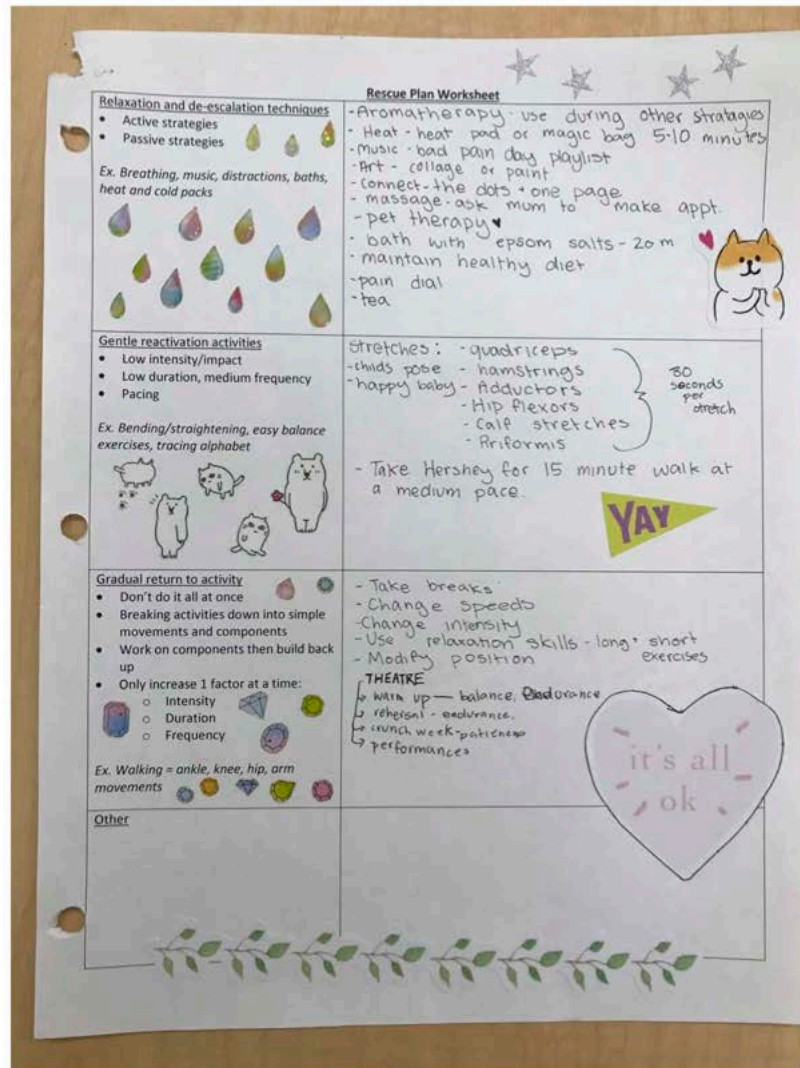 Rescue Plan Worksheet
Relaxation and de-escalation techniques
• Active strategies
• Passive strategies
Ex. Breathing, music, distractions, baths,
heat and cold packs
-Aromatherapy - use during other stratagies
- Heat - heat pad or magic bag 5-10 minutes
-music - bad pain day playlist
-Art - collage or paint
-connect-the dots + one page
- massage - ask mum to make appt.
- pet therapy ♥
- bath with epsom salts - 20 m
- maintain healthy diet
-pain dial
-tea
Gentle reactivation activities
• Low intensity/impact
• Low duration, medium frequency
• Pacing
Ex. Bending/straightening, easy balance
exercises, tracing alphabet
Stretches: - quadriceps
-childs pose - hamstrings
-happy baby - Adductors
- Hip flexors
- Calf stretches
- Priformis
30
seconds
per
stretch
- Take Hershey for 15 minute walk at
a medium pace.
YAY
Gradual return to activity
• Don't do it all at once
• Breaking activities down into simple
movements and components
• Work on components then build back
up
• Only increase 1 factor at a time:
o Intensity
o Duration
o Frequency
Ex. Walking = ankle, knee, hip, arm
movements
- Take breaks
- Change speeds
-Change intensity
- Use relaxation skills - long + short
exercises
- Modify position
THEATRE
↳ warm up — balance, Endurance
↳ rehersal - endurance.
↳ crunch week - patience
↳ performances
it's all
ok
Other